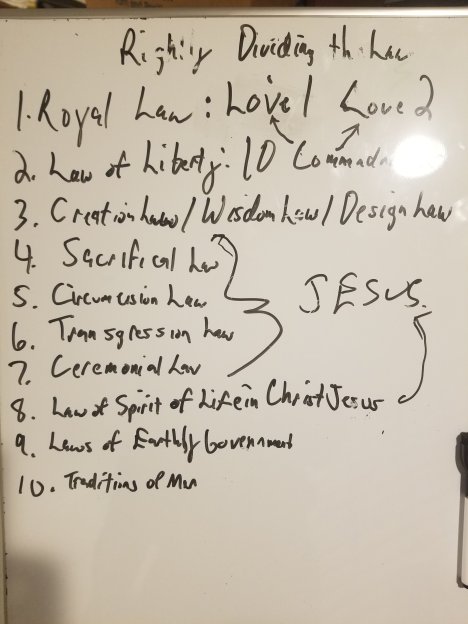 Rightly Dividing the Law
1. Royal Law: Love 1 Love 2
2. Law of Liberty: 10
3. Creation Laws / Wisdom Law / Design Law
4. Sacrifical Law
5. Circumcision Law
JESUS
6. Transgression Law
7. Ceremonial Law
8. Law of Spirit of Life in Christ Jesus
9. Laws of Earthly Government
10. Traditions of Man